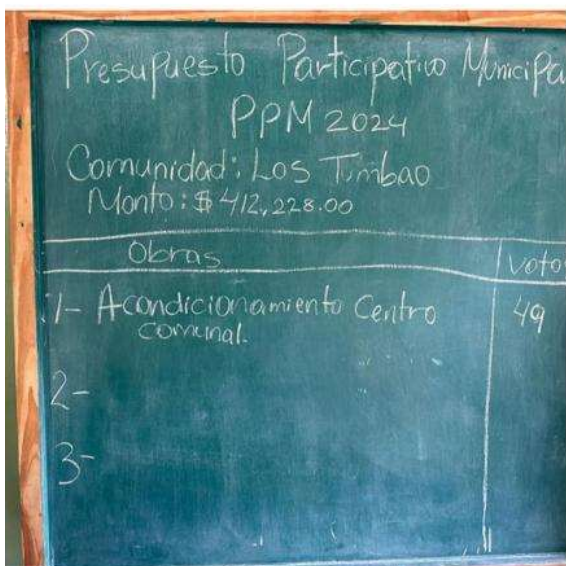 Presupuesto Participativo Municipa
PPM 2024
Comunidad: Los Timbao
Monto: $412,228.00
Obras
voto
1- Acondicionamiento Centro
comunal.
49
2-
3-